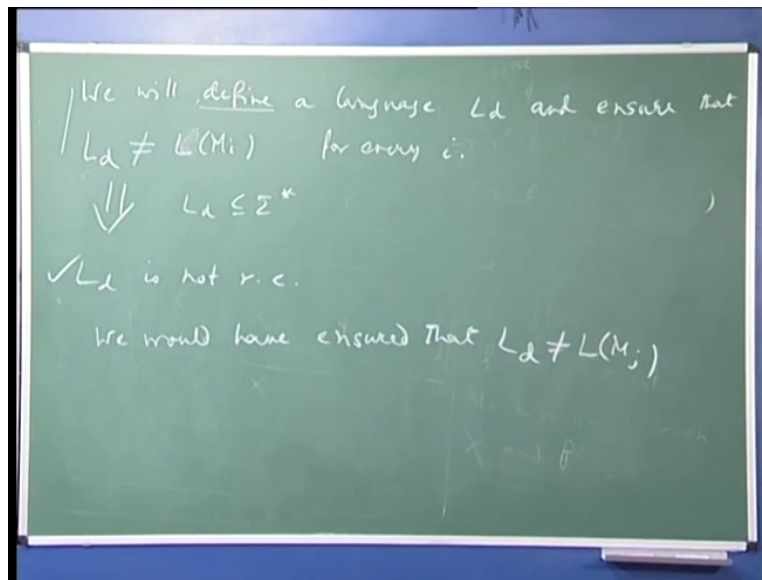 We will define a language Ld and ensure that
Ld ≠ L(Mi) for every i.
⇓ Ld ⊆ Σ*
✓Ld is not r.e.
We would have ensured that Ld ≠ L(Mj)
X and β